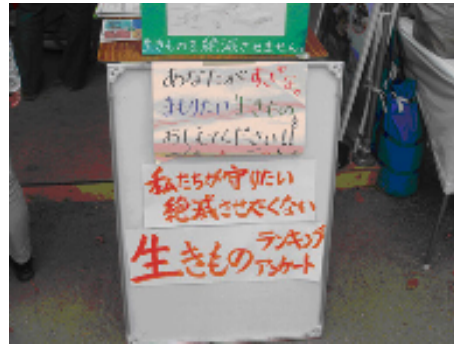 生きものを絶滅させません。
あなたがすきな。
まもりたい生きものを
おしえてください!!
私たちが守りたい
絶滅させたくない
生きものランキング
アンケート